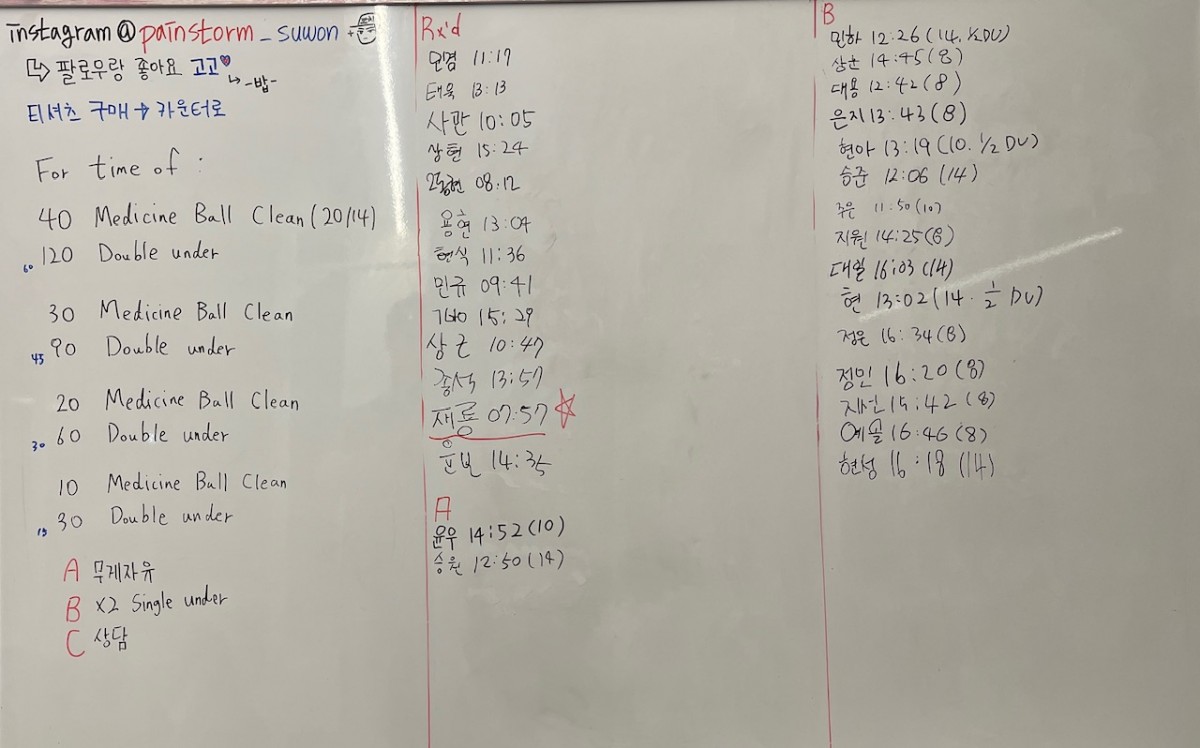 instagram@painstorm_suwon
팔로우랑 좋아요 고고♥
-밥-
티셔츠 구매 → 카운터로
For time of :
40 Medicine Ball Clean (20/14)
60 120 Double under
30 Medicine Ball Clean
45 90 Double under
20 Medicine Ball Clean
30 60 Double under
10 Medicine Ball Clean
15 30 Double under
A 무게자유
B x2 Single under
C 상담
Rx'd
11:17
태욱 13:13
사관 10:05
상현 15:24
08:12
용현 13:04
현식 11:36
민규 09:41
15:29
상근 10:47
종석 13:57
재룡 07:57 ☆
14:35
A
윤우 14:52 (10)
승원 12:50 (14)
B
민하 12:26 (14. 1/2DU)
상은 14:45 (8)
대용 12:42 (8)
은지 13:43 (8)
현아 13:19 (10. 1/2 DU)
승준 12:06 (14)
주은 11:50 (10)
지원 14:25 (8)
대일 16:03 (14)
현 13:02 (14. 1/2 DU)
정은 16:34 (8)
정민 16:20 (8)
15:42 (8)
예솔 16:46 (8)
현성 16:18 (14)